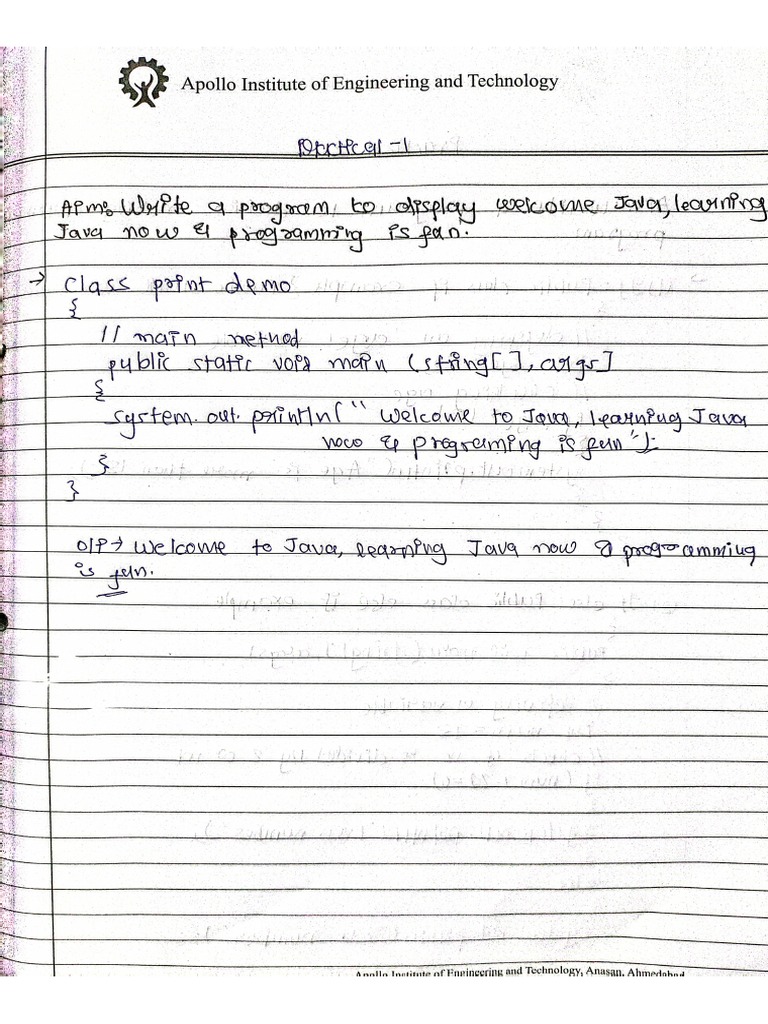 Apollo Institute of Engineering and Technology
Practical-1
Aim: Write a program to display welcome Java, learning
Java now & programming is fun.
→ class print demo
{
// main method
public static void main (string[], args]
{
system.out.println(" Welcome to Java, learning Java
now & programing is fun");
}
}
O/P → Welcome to Java, learning Java now & programming
is fun.
Apollo Institute of Engineering and Technology, Anasan, Ahmedabad